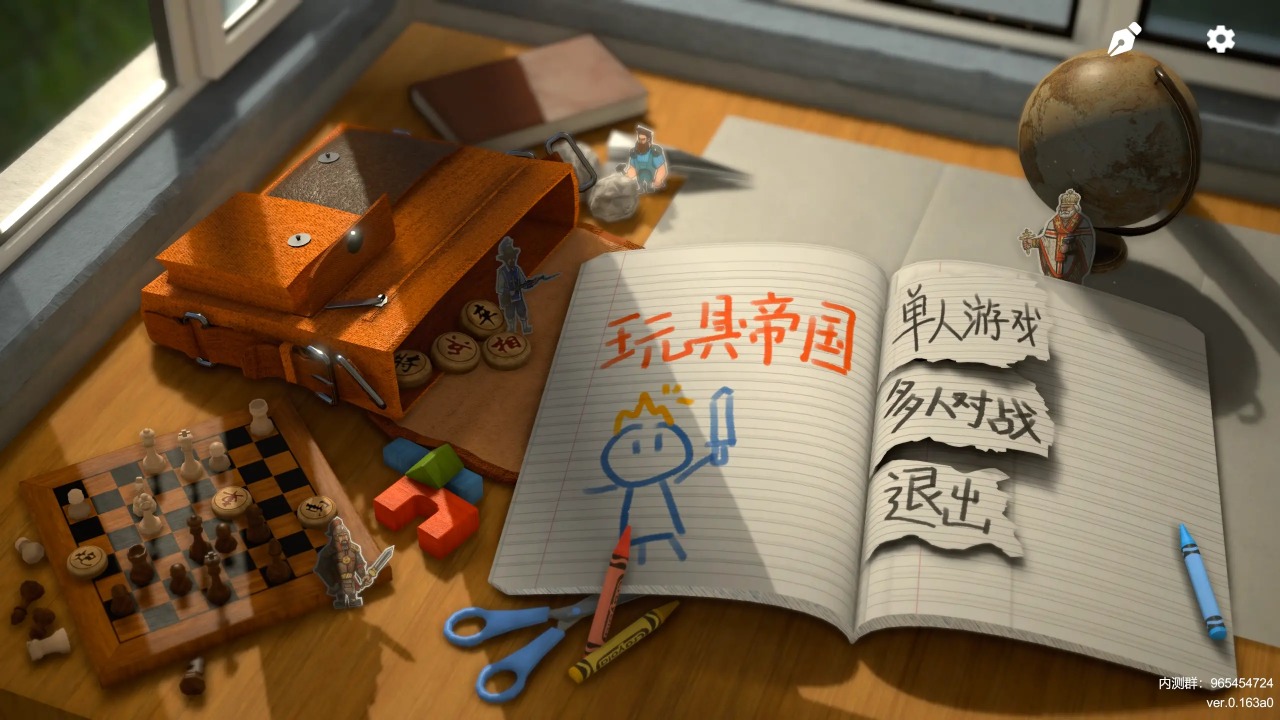 玩具帝国
单人游戏
多人对战
退出
相
内测群：965454724
ver.0.163a0